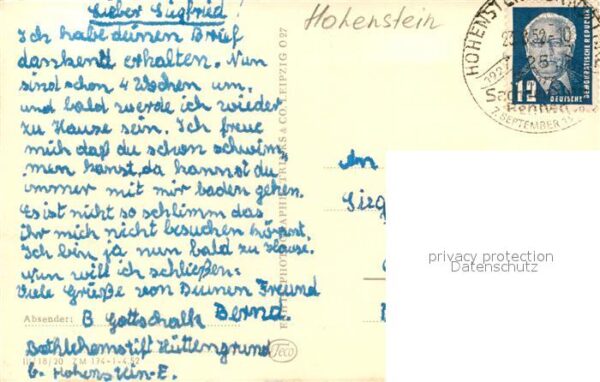 Lieber Siegfried!
Hohenstein
Ich habe deinen Brief
dankend erhalten. Nun
sind schon 4 Wochen um,
und bald werde ich wieder
zu Hause sein. Ich freue
mich daß du schon schwim_
men kanst, da kannst du
immer mit mir baden gehen.
Es ist nicht so schlimm das
ihr mich nicht besuchen könnt.
Ich bin ja nun bald zu Hause.
Nun will ich schließen:
Viele Grüße von Deinem Freund
Bernd
Absender: B Gottschalk
Bethlehemstift Hüttengrund
b. Hohenstein-E.
III/18/20 ZM 174-1-4.52
Teco
TRINKS & CO., LEIPZIG O 27
An
HOHENSTEIN
1927
25
Rennen
7. SEPTEMBER
12
DEUTSCHE
DEMOKRATISCHE REPUBLIK
privacy protection
Datenschutz